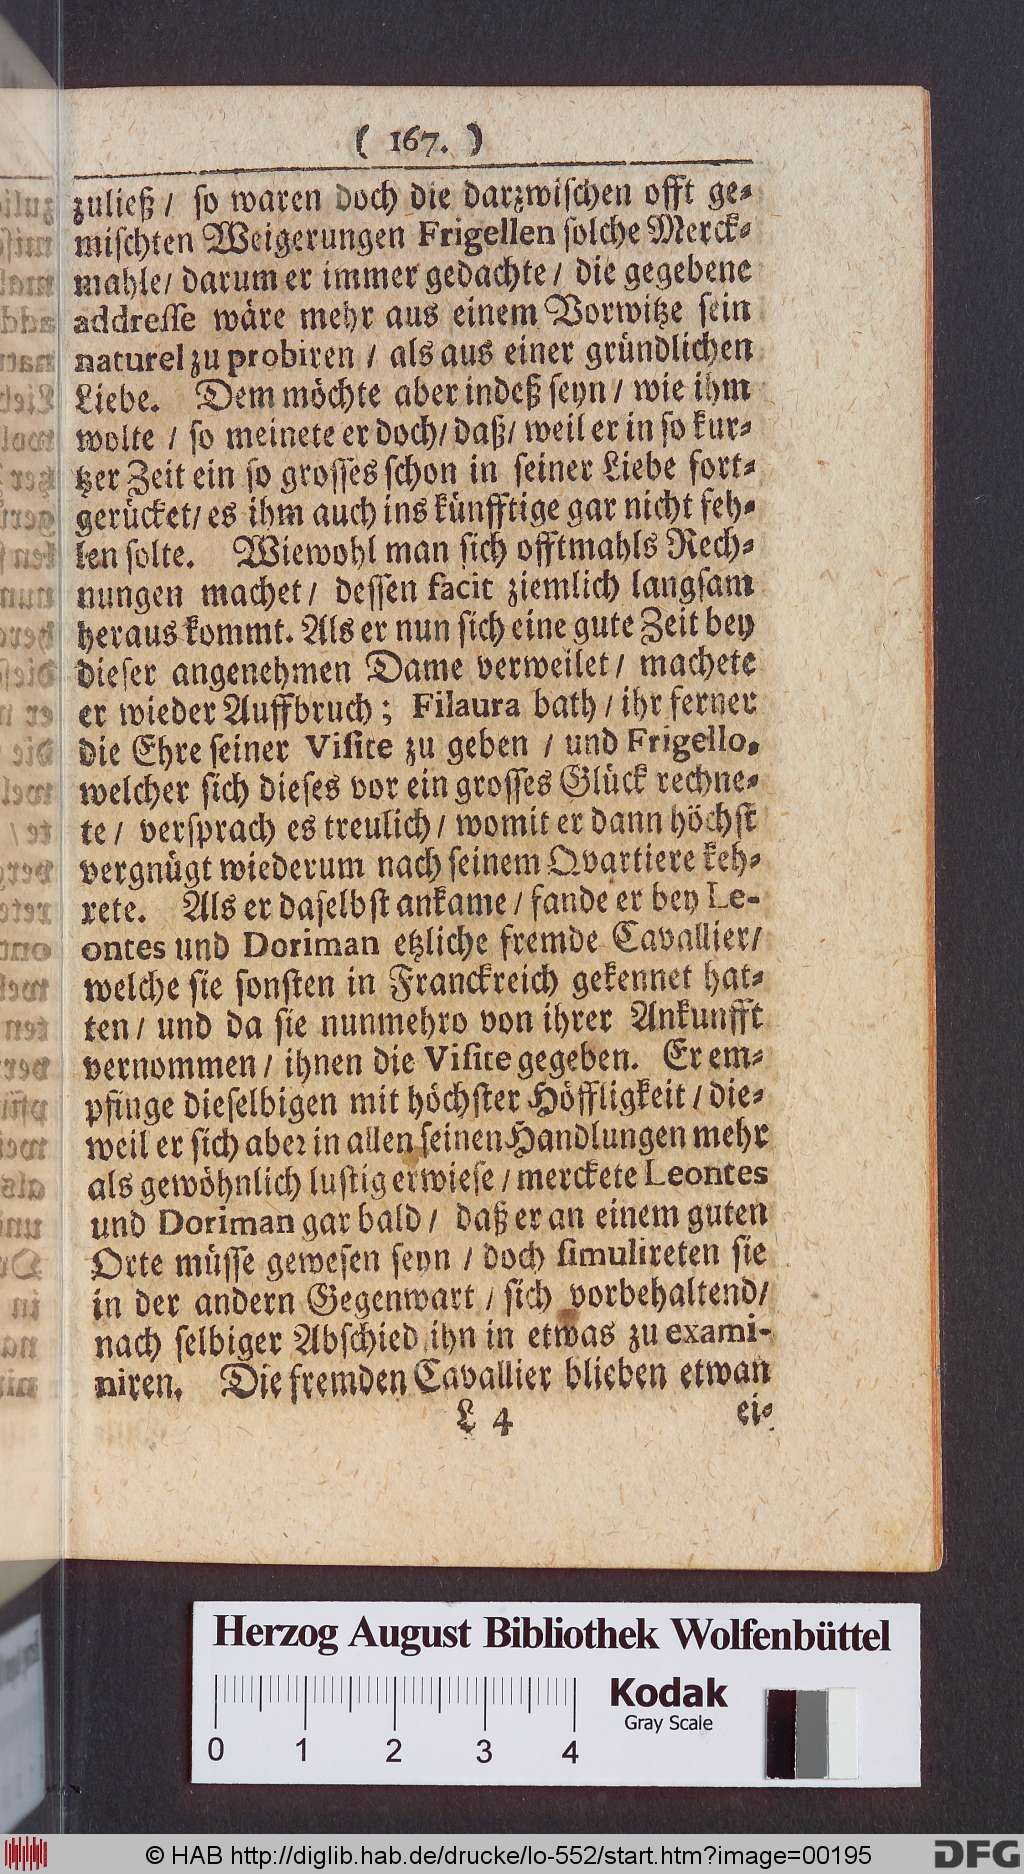 ( 167. )
zuließ / so waren doch die darzwischen offt ge-
mischten Weigerungen Frigellen solche Merck-
mahle / darum er immer gedachte / die gegebene
addresse wäre mehr aus einem Vorwitze sein
naturel zu probiren / als aus einer gründlichen
Liebe. Dem möchte aber indeß seyn / wie ihm
wolte / so meinete er doch / daß / weil er in so kur-
tzer Zeit ein so grosses schon in seiner Liebe fort-
gerücket / es ihm auch ins künfftige gar nicht feh-
len solte. Wiewohl man sich offtmahls Rech-
nungen machet / dessen facit ziemlich langsam
heraus kommt. Als er nun sich eine gute Zeit bey
dieser angenehmen Dame verweilet / machete
er wieder Auffbruch ; Filaura bath / ihr ferner
die Ehre seiner Visite zu geben / und Frigello,
welcher sich dieses vor ein grosses Glück rechne-
te / versprach es treulich / womit er dann höchst
vergnügt wiederum nach seinem Qvartiere keh-
rete. Als er daselbst ankame / fande er bey Le-
ontes und Doriman etzliche fremde Cavallier /
welche sie sonsten in Franckreich gekennet hat-
ten / und da sie nunmehro von ihrer Ankunfft
vernommen / ihnen die Visite gegeben. Er em-
pfinge dieselbigen mit höchster Höffligkeit / die-
weil er sich aber in allen seinen Handlungen mehr
als gewöhnlich lustig erwiese / merckete Leontes
und Doriman gar bald / daß er an einem guten
Orte müsse gewesen seyn / doch simulireten sie
in der andern Gegenwart / sich vorbehaltend /
nach selbiger Abschied ihn in etwas zu exami-
niren. Die fremden Cavallier blieben etwan
L 4 ei-
Herzog August Bibliothek Wolfenbüttel
Kodak
Gray Scale
0 1 2 3 4
© HAB http://diglib.hab.de/drucke/lo-552/start.htm?image=00195
DFG